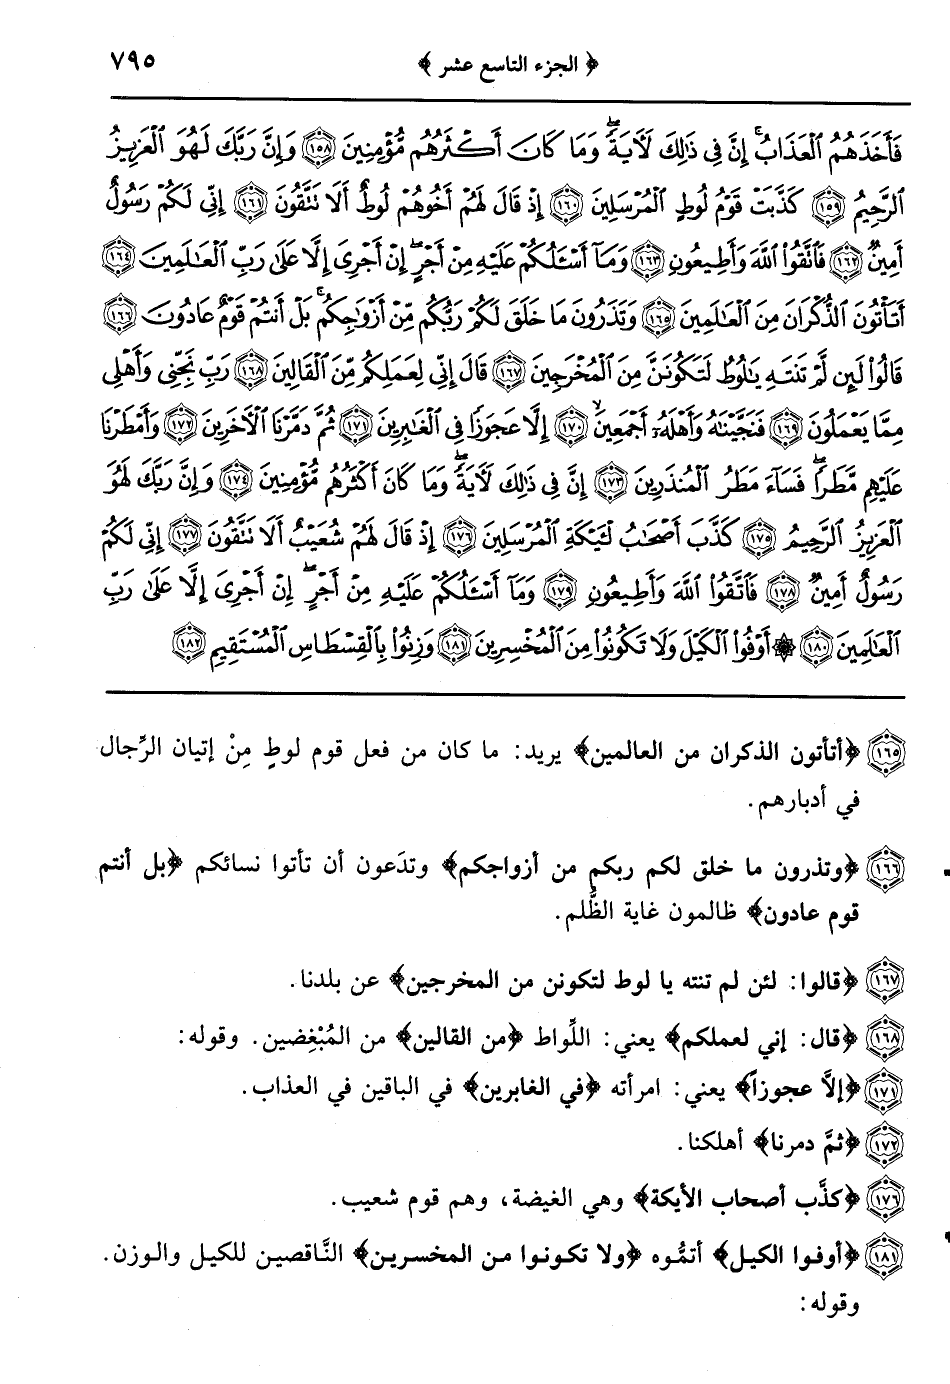 ﴿ الجزء التاسع عشر ﴾ ٧٩٥
فَأَخَذَهُمُ ٱلْعَذَابُ ۚ إِنَّ فِى ذَٰلِكَ لَـَٔايَةً ۖ وَمَا كَانَ أَكْثَرُهُم مُّؤْمِنِينَ ١٥٨ وَإِنَّ رَبَّكَ لَهُوَ ٱلْعَزِيزُ
ٱلرَّحِيمُ ١٥٩ كَذَّبَتْ قَوْمُ لُوطٍ ٱلْمُرْسَلِينَ ١٦٠ إِذْ قَالَ لَهُمْ أَخُوهُمْ لُوطٌ أَلَا تَتَّقُونَ ١٦١ إِنِّى لَكُمْ رَسُولٌ
أَمِينٌ ١٦٢ فَٱتَّقُوا۟ ٱللَّهَ وَأَطِيعُونِ ١٦٣ وَمَآ أَسْـَٔلُكُمْ عَلَيْهِ مِنْ أَجْرٍ ۖ إِنْ أَجْرِىَ إِلَّا عَلَىٰ رَبِّ ٱلْعَـٰلَمِينَ ١٦٤
أَتَأْتُونَ ٱلذُّكْرَانَ مِنَ ٱلْعَـٰلَمِينَ ١٦٥ وَتَذَرُونَ مَا خَلَقَ لَكُمْ رَبُّكُم مِّنْ أَزْوَٰجِكُم ۚ بَلْ أَنتُمْ قَوْمٌ عَادُونَ ١٦٦
قَالُوا۟ لَئِن لَّمْ تَنتَهِ يَـٰلُوطُ لَتَكُونَنَّ مِنَ ٱلْمُخْرَجِينَ ١٦٧ قَالَ إِنِّى لِعَمَلِكُم مِّنَ ٱلْقَالِينَ ١٦٨ رَبِّ نَجِّنِى وَأَهْلِى
مِمَّا يَعْمَلُونَ ١٦٩ فَنَجَّيْنَـٰهُ وَأَهْلَهُۥٓ أَجْمَعِينَ ١٧٠ إِلَّا عَجُوزًا فِى ٱلْغَـٰبِرِينَ ١٧١ ثُمَّ دَمَّرْنَا ٱلْـَٔاخَرِينَ ١٧٢ وَأَمْطَرْنَا
عَلَيْهِم مَّطَرًا ۖ فَسَآءَ مَطَرُ ٱلْمُنذَرِينَ ١٧٣ إِنَّ فِى ذَٰلِكَ لَـَٔايَةً ۖ وَمَا كَانَ أَكْثَرُهُم مُّؤْمِنِينَ ١٧٤ وَإِنَّ رَبَّكَ لَهُوَ
ٱلْعَزِيزُ ٱلرَّحِيمُ ١٧٥ كَذَّبَ أَصْحَـٰبُ لْـَٔيْكَةِ ٱلْمُرْسَلِينَ ١٧٦ إِذْ قَالَ لَهُمْ شُعَيْبٌ أَلَا تَتَّقُونَ ١٧٧ إِنِّى لَكُمْ
رَسُولٌ أَمِينٌ ١٧٨ فَٱتَّقُوا۟ ٱللَّهَ وَأَطِيعُونِ ١٧٩ وَمَآ أَسْـَٔلُكُمْ عَلَيْهِ مِنْ أَجْرٍ ۖ إِنْ أَجْرِىَ إِلَّا عَلَىٰ رَبِّ
ٱلْعَـٰلَمِينَ ١٨٠ ۞ أَوْفُوا۟ ٱلْكَيْلَ وَلَا تَكُونُوا۟ مِنَ ٱلْمُخْسِرِينَ ١٨١ وَزِنُوا۟ بِٱلْقِسْطَاسِ ٱلْمُسْتَقِيمِ ١٨٢
١٦٥ ﴿أتأتون الذكران من العالمين﴾ يريد: ما كان من فعل قوم لوطٍ مِنْ إتيان الرِّجال
في أدبارهم.
١٦٦ ﴿وتذرون ما خلق لكم ربكم من أزواجكم﴾ وتدَعون أن تأتوا نسائكم ﴿بل أنتم
قوم عادون﴾ ظالمون غاية الظُّلم.
١٦٧ ﴿قالوا: لئن لم تنته يا لوط لتكونن من المخرجين﴾ عن بلدنا.
١٦٨ ﴿قال: إني لعملكم﴾ يعني: اللِّواط ﴿من القالين﴾ من المُبْغِضين. وقوله:
١٧١ ﴿إلاَّ عجوزاً﴾ يعني: امرأته ﴿في الغابرين﴾ في الباقين في العذاب.
١٧٢ ﴿ثمَّ دمرنا﴾ أهلكنا.
١٧٦ ﴿كذَّب أصحاب الأيكة﴾ وهي الغيضة، وهم قوم شعيب.
١٨١ ﴿أوفوا الكيل﴾ أتمُّوه ﴿ولا تكونوا من المخسرين﴾ النَّاقصين للكيل والوزن.
وقوله: